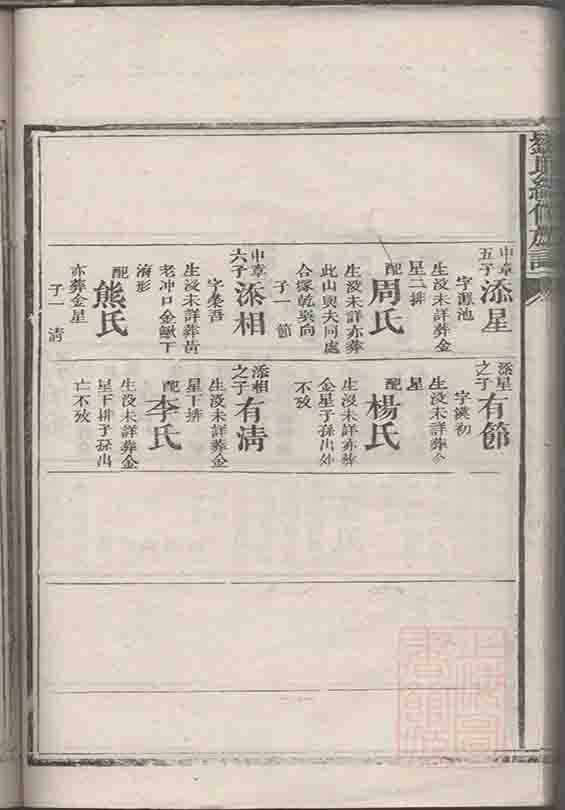 申章
五子
添星
字遐池
生没未詳葬金
星二排
配
周氏
生没未詳亦葬
此山與夫同處
合塚乾巽向
子一 節
申章
六子
添相
字榮吾
生没未詳葬黃
老冲口金鰍下
濱形
配
熊氏
亦葬金星
子一 清
添星
之子
有節
字漢初
生没未詳葬金
星
配
楊氏
生没未詳亦葬
金星子孫出外
不攷
添相
之子
有清
生没未詳葬金
星下排
配
李氏
生没未詳葬金
星下排子孫出
亡不攷